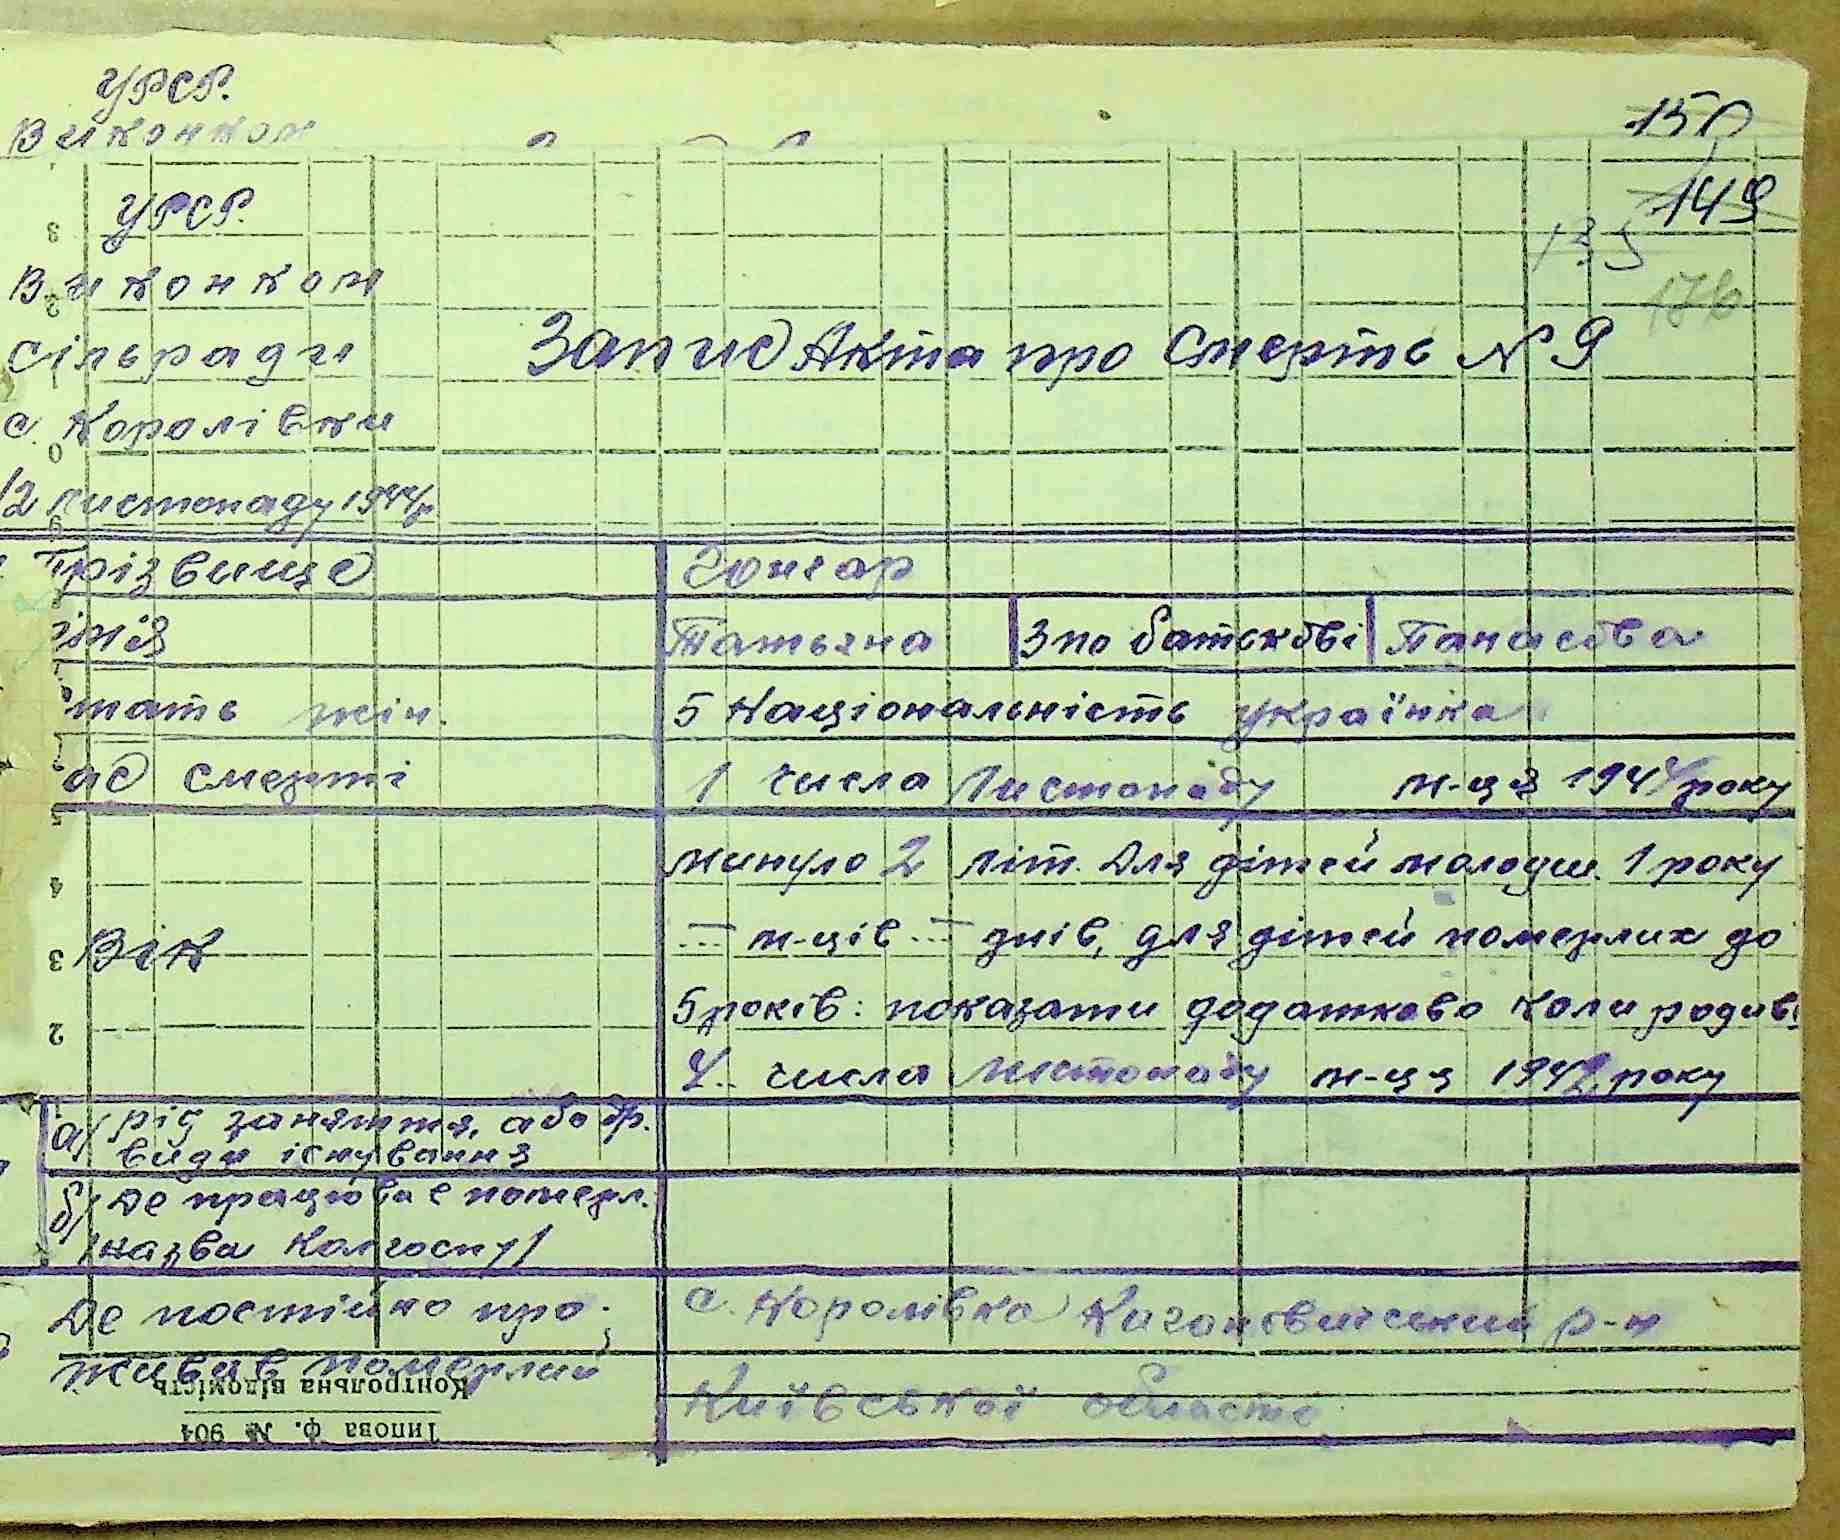 УРСР.
Виконком
150
УРСР.
149
135
Виконком
176
Сільради
Запис Акта про Смерть № 9
с. Королівки
12 листопаду 1944р
Прізвище
Гончар
імя
Татьяна
3 по батькові
Панасова
тать жін.
5 Національність українка
ас смерті
1 числа Листопаду м-ця 1944 року
Вік
минуло 2 літ. Для дітей молодш. 1 року
--- м-ців --- днів, для дітей померлих до
5 років: показати додатково коли родивс
4. числа листопаду м-ця 1942 року
а/ рід заняття, або др.
види існування
б/ Де працював померл.
/назва колгоспу/
Де постійно про-
живав померлий
с. Королівка Кагановичський р-н
Київської области
Контрольна відомість
Типова ф. № 904